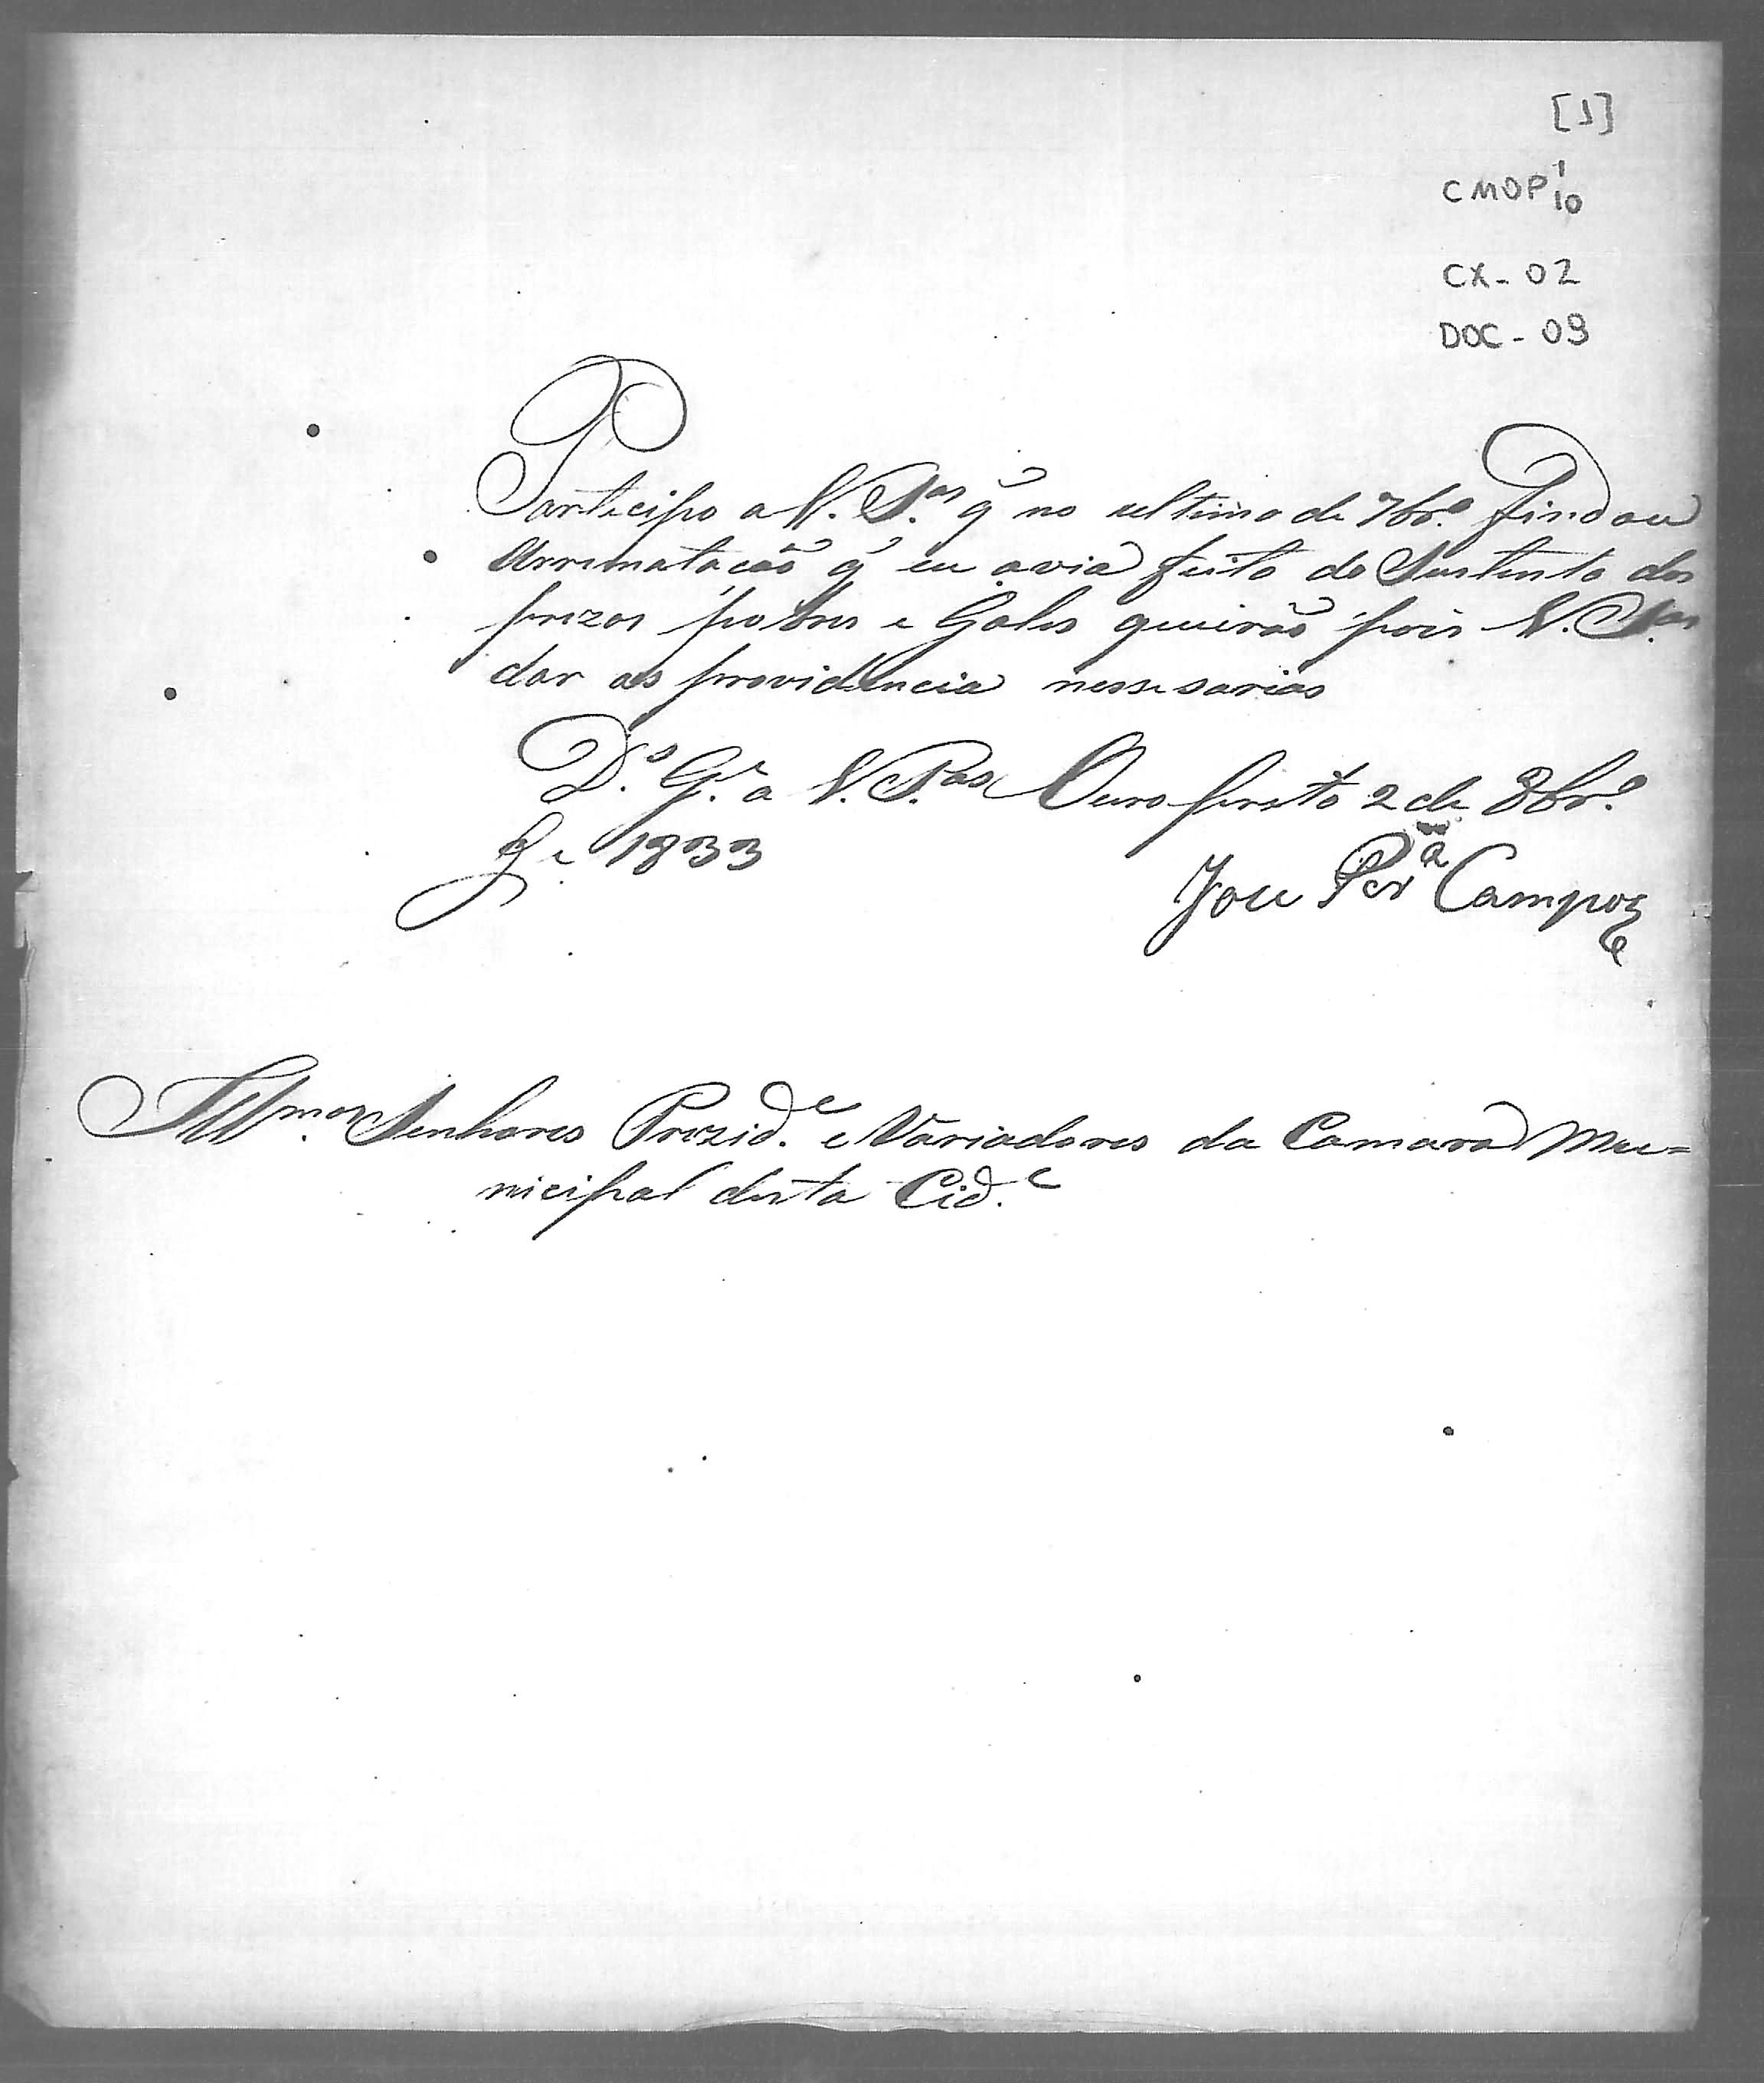 [1]
CMOP 1/10
CX - 02
DOC - 09
Participo a V. S.as q̃ no ultimo de 7br.o findou
Arrematacaõ q̃ eu avia feito do Sustento dos
prezos pobres e Gales queiraõ pois V. S.as
dar as providencia nessesarias
D.s G.e a V. S.as Ouro preto 2 de 8br.o
de 1833
Joze Per.a Campos
Ill.mos Senhores Prezid.e e Variadores da Camara Mu=
nicipal desta Cid.e